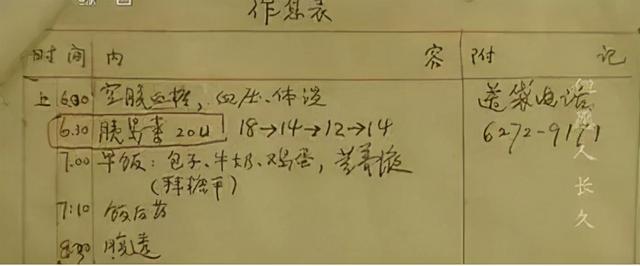 作息表
时间 内容 附记
上 6.00 空腹血糖,血压、体温 送袋电话
6.30 胰岛素 20u 18→14→12→14 6272-9171
7.00 早饭:包子、牛奶、鸡蛋,苦荞
(拜糖平)
7:10 饭后药
8.00 腹透
人长久